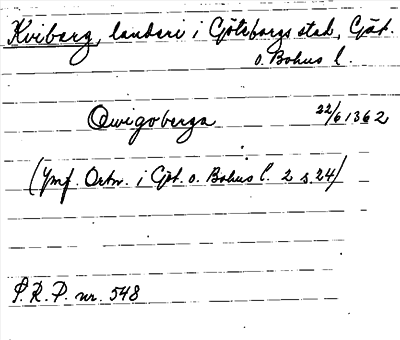 Kviberg, landeri i Göteborgs stad, Göt.
o. Bohus l.
Qwigoberga 22/6 1362
(Jmf. Ortn. i Göt. o. Bohus l. 2 s. 24)
P. R. P. nr. 548